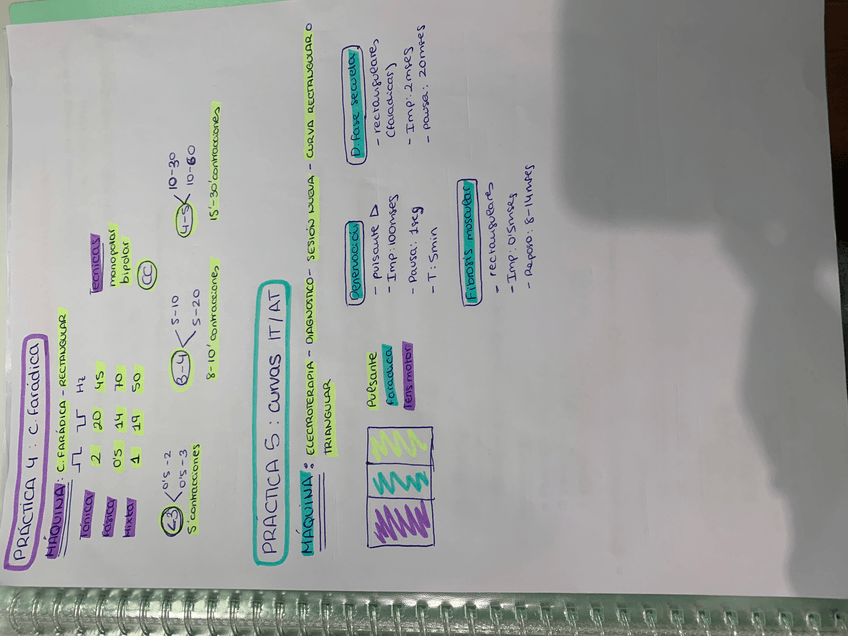 PRÁCTICA 4 : C. Farádica
MÁQUINA : C. FARÁDICA - RECTANGULAR
Hz
Tónica 2 20 45
Fásica 0'5 14 70
Mixta 1 19 50
Técnicas
monopolar
bipolar
CC
<3 < 0'5-2
0'5-3
5' contracciones
3-4 < 5-10
5-20
8-10' contracciones
4-5 < 10-30
10-60
15'-30' contracciones
PRÁCTICA 5 : curvas IT/AT
MÁQUINA : ELECTROTERAPIA - DIAGNOSTICO - SESIÓN NUEVA - CURVA RECTANGULAR O
TRIANGULAR
Pulsante
Faradica
Tens motor
Denervación
- Pulsante ▷
- Imp: 100mses
- Pausa: 1seg
- T: 5min
D. fase secuelar
- rectangulares
(faradicas)
- Imp: 2mses
- pausa: 20mses
Fibrosis muscular
- rectangulares
- Imp: 0'5mses
- Reposo: 8-14mses